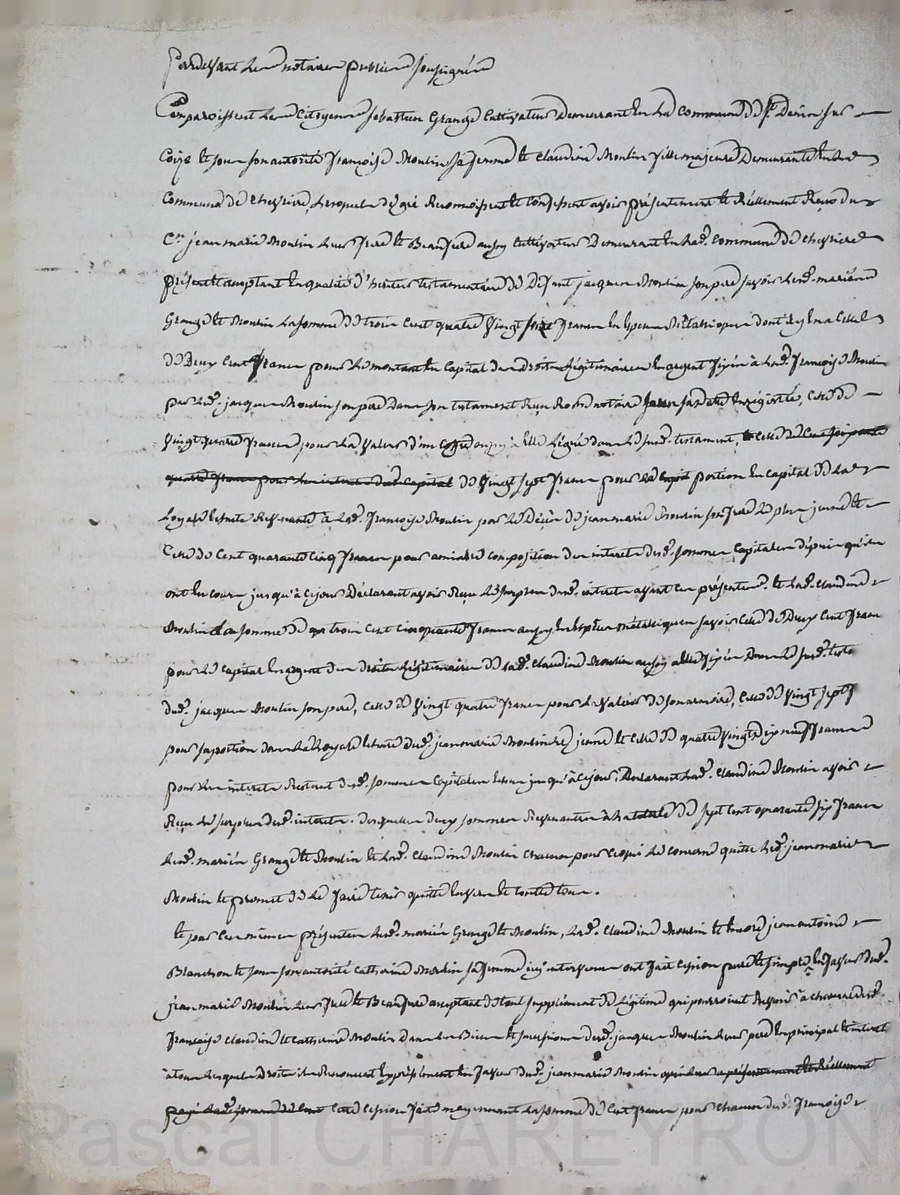 Pardevant le notaire public soussigné
Comparoissent le Citoyen Sebastien Grange Cultivateur Demeurant en la Commune de St. Denis sur
Coize et sous son autorité françoise Moulin sa femme et Claudine Moulin fille majeure Demeurante en
Commune de Chevrière, lesquels de gré Reconnoissent et Confessent avoir présentement et Réellement Reçu du
Cen. jean marie Moulin leur frere et Beaufrere aussy Cultivateur Demeurant en lad. Commune de Chevrière
présent et acceptant en qualité d'heritier testamentaire de Défunt jacques Moulin son pere savoir lesd. mariés
Grange et Moulin la somme de trois Cent quatre vingt seize francs en Especes Métaliques dont il y en a Celle
de Deux Cent francs pour le montant en Capital des droits Légitimaires en argent fixés à lad. françoise Moulin
par led. jacques Moulin son pere dans son testament Reçu notaire sa datte enrégistré, Celle de
vingt quatre francs pour la valeur d'un Coffre aussy à elle Légué dans led. testament, et Celle de Cent soixante
quatre francs pour les interets dud. Capital de vingt sept francs pour la portion en Capital de la
Loyale echute Revenante à lad. françoise Moulin par le Décès de jeanmarie Moulin son frere le plus jeune et
Celle de Cent quarante Cinq francs pour amiable Composition des interets desd. sommes Capitales depuis qu'ils
ont eu cours jusqu'à Cejour Déclarant avoir Reçu le surplus desd. interets avant Ces présentes. et lad. Claudine
Moulin la somme de trois Cent Cinquante francs aussy en Especes métaliques savoir Celle de Deux Cent francs
pour le Capital en argent des droits Légitimaires de lad. Claudine Moulin aussy à elle fixés Dans led. testa
dud. jacques Moulin son pere, Celle de vingt quatre francs pour la valeur de son armoire, Celle de vingt sept f
pour sa portion dans la Loyale echute dud. jeanmarie Moulin le jeune et Celle de quatre vingt dix neuf francs
pour les interets Restant desd. sommes Capitales echus jusqu'à Cejour, Declarant lad. Claudine Moulin avoir
Reçu le surplus desd. interets. Desquelles deux sommes Revenantes à la totale de sept Cent quarante six francs
lesd. mariés Grange et Moulin et lad. Claudine Moulin Chacun pour Ce qui les Concerne quitte led. jeanmarie
Moulin et promet de le faire tenir quitte envers et contre tous.
et par Ces mêmes présentes lesd. mariés Grange et Moulin, lad. Claudine Moulin et encore jean antoine
Blanchon et sous son autorité Catherine Moulin sa femme icy intervenus ont fait Cession pure et simple en faveur dud.
jeanmarie Moulin leur frere et Beaufrere acceptant de tout supplément de Légitime qui pourroient Revenir à Chacune desd.
françoise Claudine et Catherine Moulin dans les Biens et succession dud. jacques Moulin leur pere en principal et interet
à tous lesquels Droits ils Renoncent expressément en faveur dud. jeanmarie Moulin présentement et Réellement
payé Cette Cession faite moyennant la somme de Cent francs pour Chacune desd. françoise
Pascal CHAREYRON